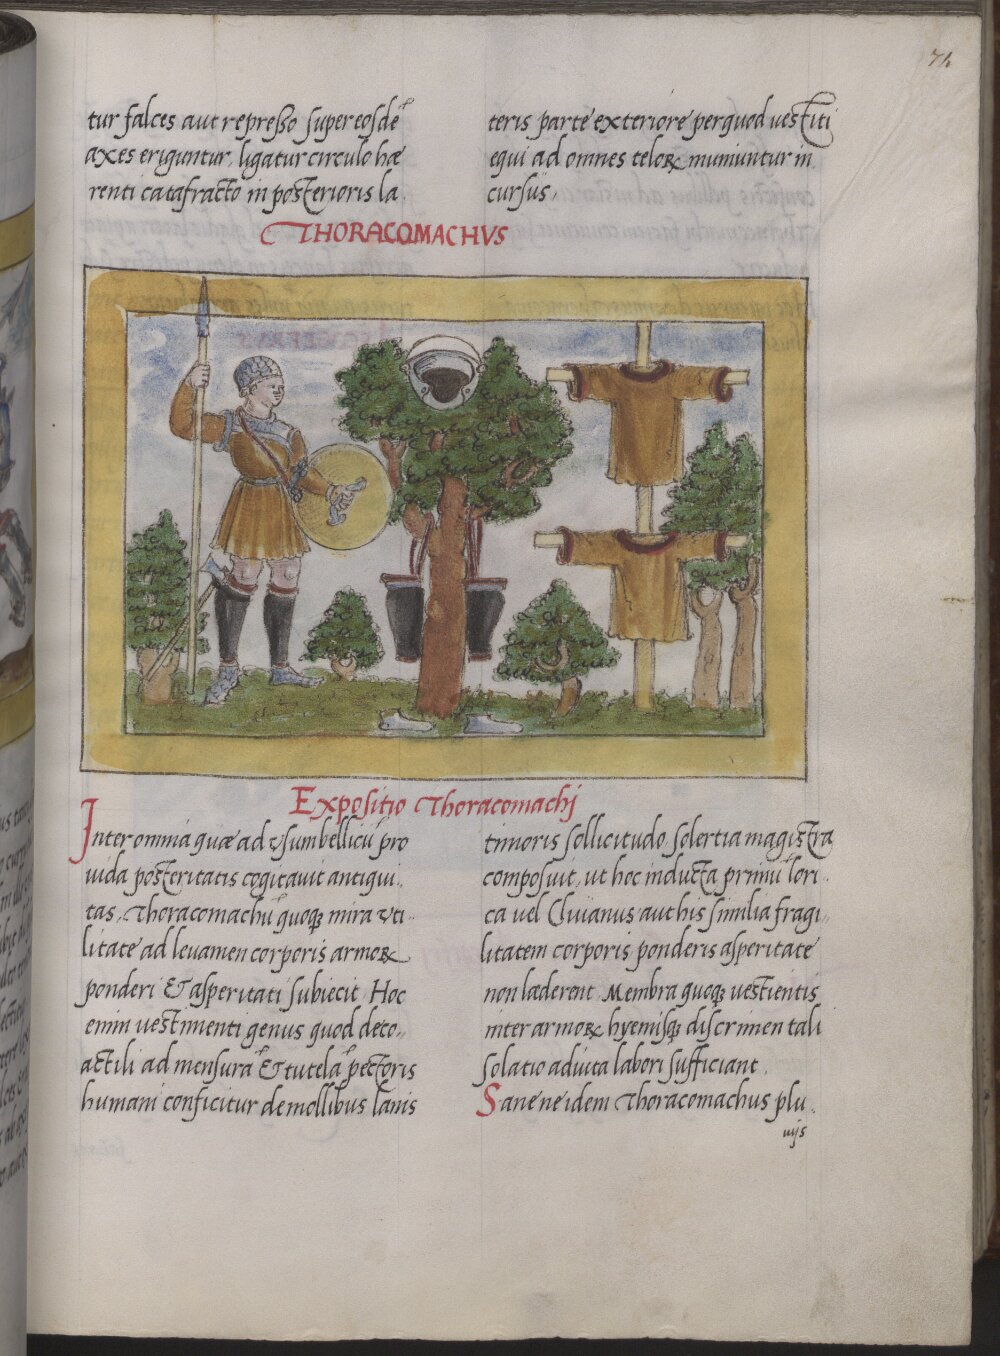 74
tur falces aut represso super eosdē
axes eriguntur, ligatur circulo hæ
renti catafracto in posterioris la
teris parte exteriore per quod uestiti
equi ad omnes teloꝝ muniuntur in
cursus,
THORACOMACHVS
Expositio Thoracomachj
Inter omnia quæ ad vsum bellicū pro
uida posteritatis cogitauit antiqui,
tas, Thoracomachū quoqꝫ mira vti,
litate ad leuamen corporis armoꝝ
ponderi & asperitati subiecit, Hoc
enim uestimenti genus quod de co,
actili ad mensurā & tutelā pectoris
humani conficitur de mollibus lanis
timoris sollicitudo solertia magistra
composuit, ut hoc inducta primū lori,
ca uel Cliuianus aut his similia fragi,
litatem corporis ponderis asperitate
non læderent, Membra quoqꝫ uestientis
inter armoꝝ hyemisqꝫ discrimen tali
solatio adiuta labori sufficiant,
Sane ne idem Thoracomachus plu,
uijs